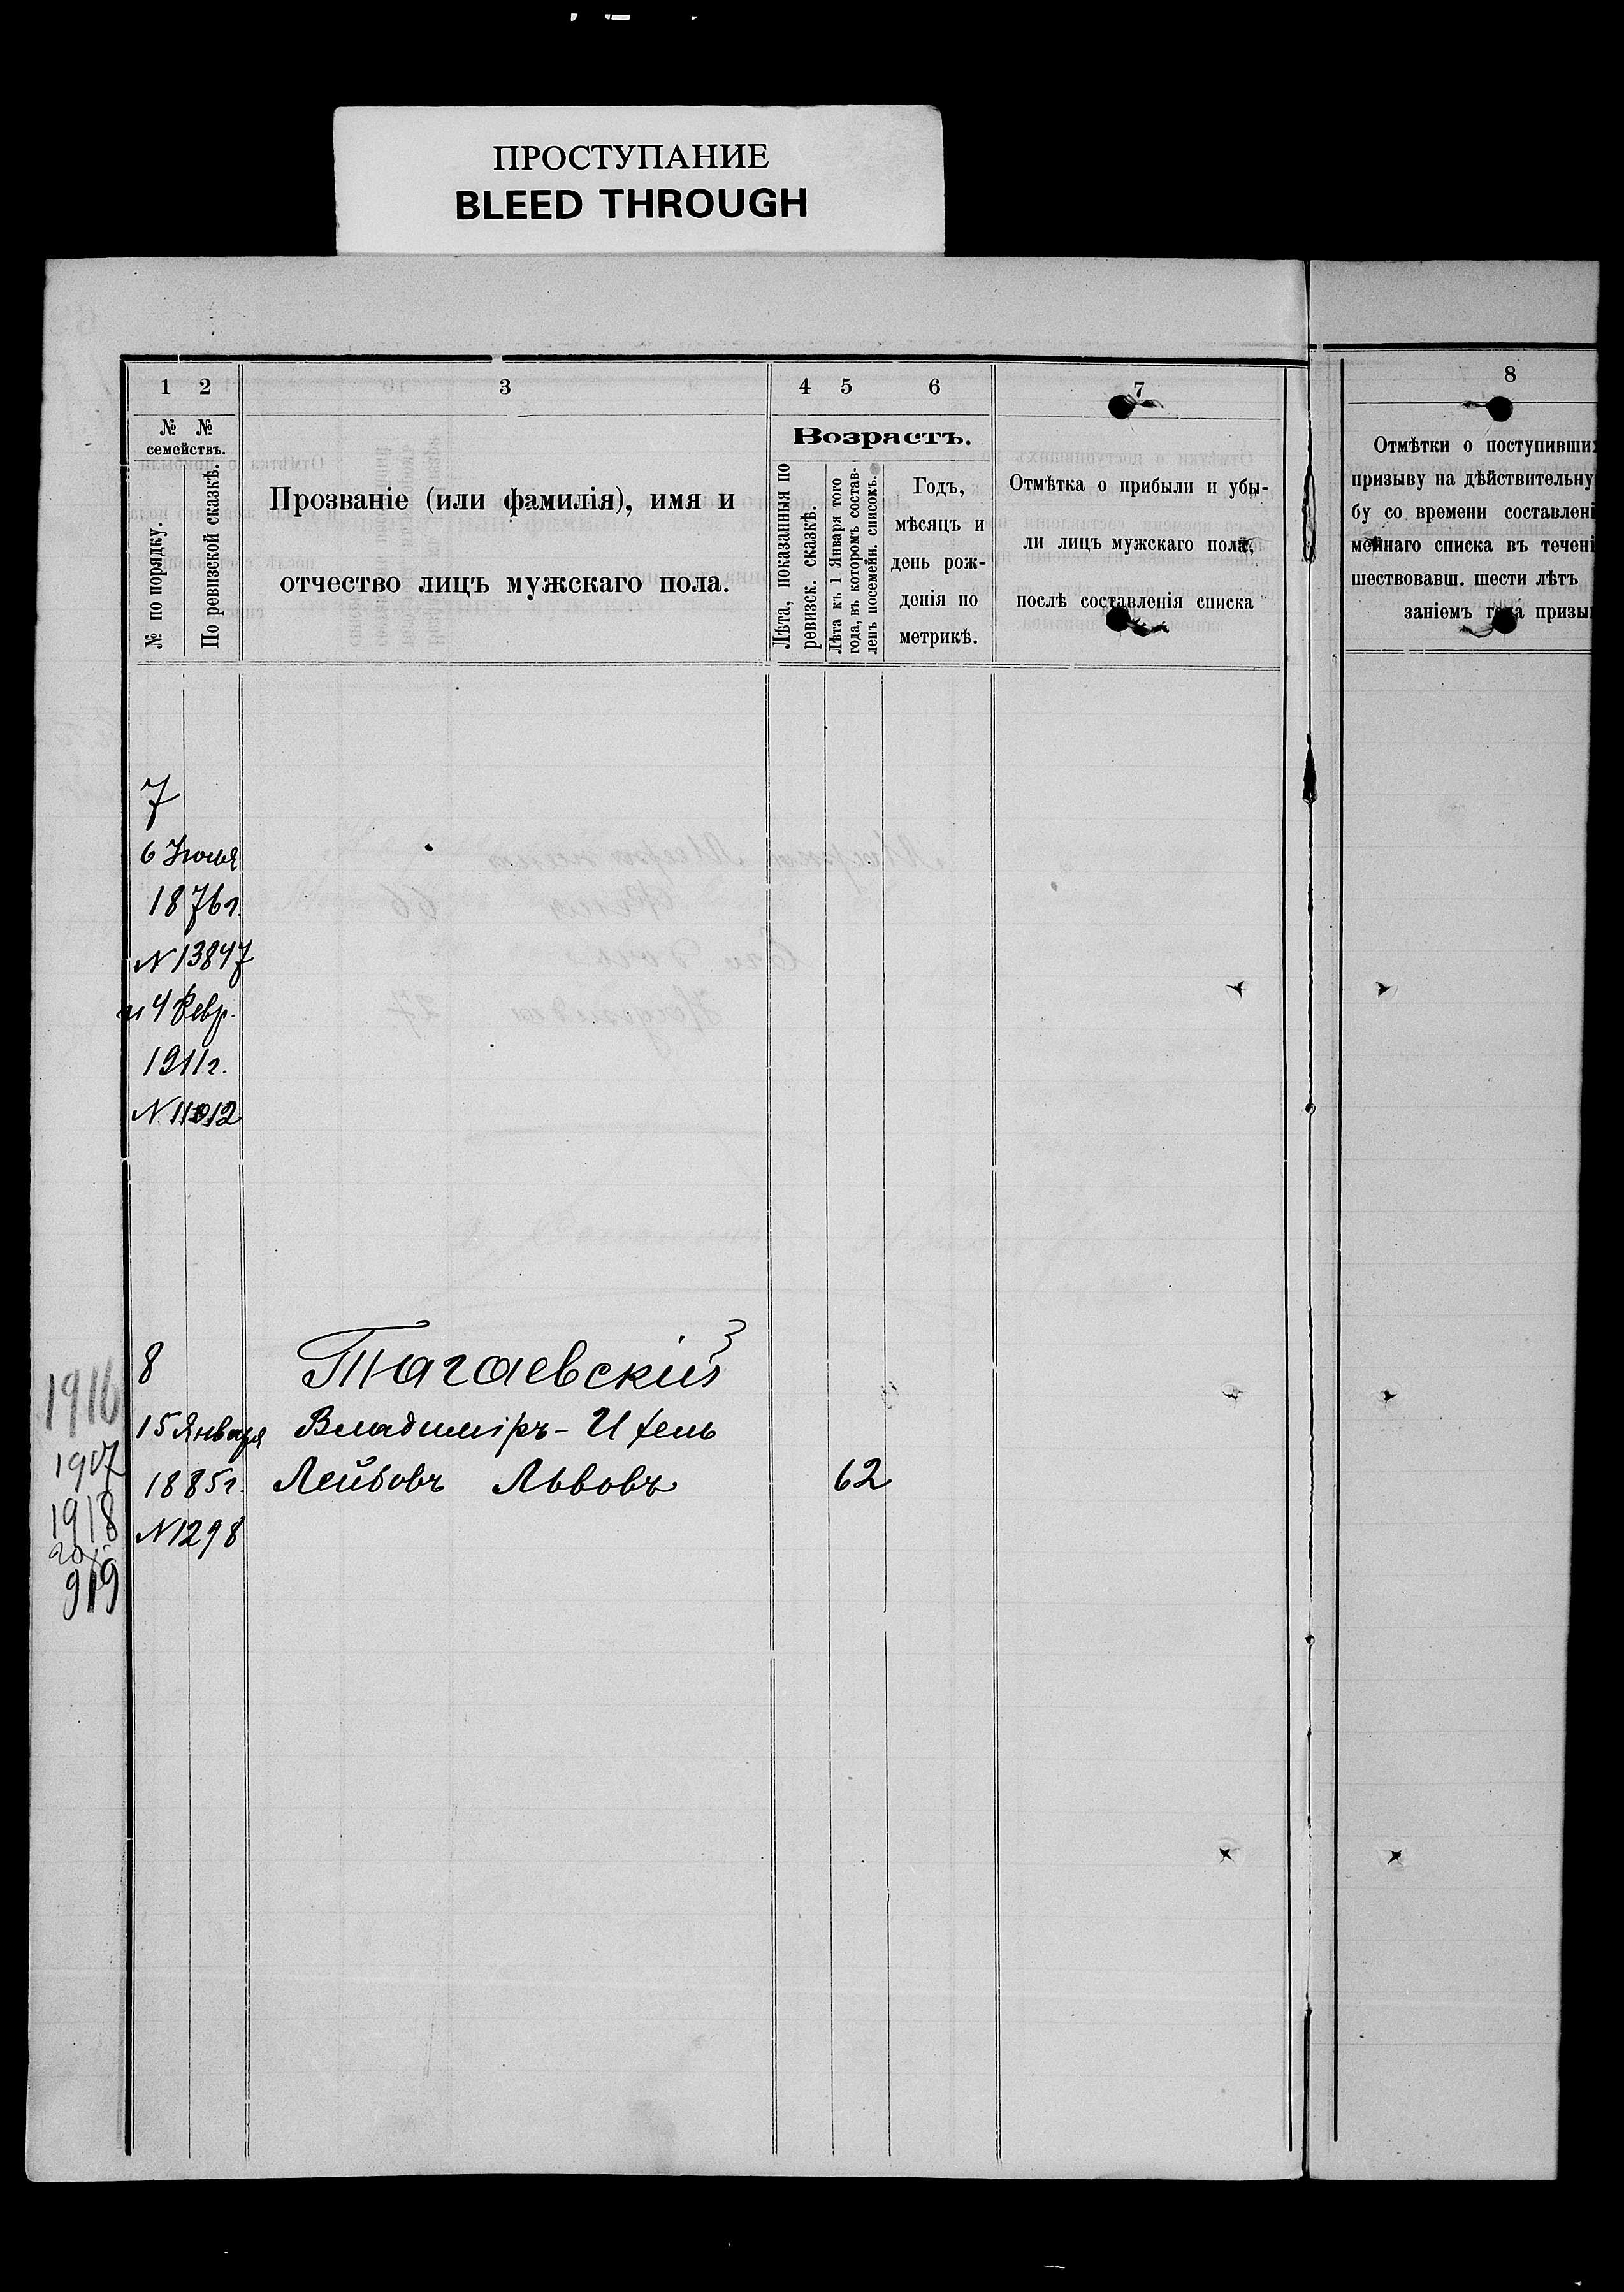 ПРОСТУПАНИЕ
BLEED THROUGH
1 2 3 4 5 6 7 8
№ № семействъ.
№ по порядку.
По ревизской сказкѣ.
Прозваніе (или фамилія), имя и
отчество лицъ мужскаго пола.
Возрастъ.
Лѣта, показанныя по
ревизск. сказкѣ.
Лѣта къ 1 Января того
года, въ которомъ состав-
ленъ посемейн. списокъ.
Годъ,
мѣсяцъ и
день рож-
денія по
метрикѣ.
Отмѣтка о прибыли и убы-
ли лицъ мужскаго пола,
послѣ составленія списка
Отмѣтки о поступивших
призыву на дѣйствительну
бу со времени составлені
мейнаго списка въ течені
шествовавш. шести лѣтъ
заніемъ года призы
7
6 Іюля
1876 г.
N 13847
и 4 Февр.
1911 г.
N 11012
8 Тагаевскій
1916
15 Января Владиміръ-Ицель
1907
1885 г. Лейбовъ Львовъ 62
1918
N 1298
919